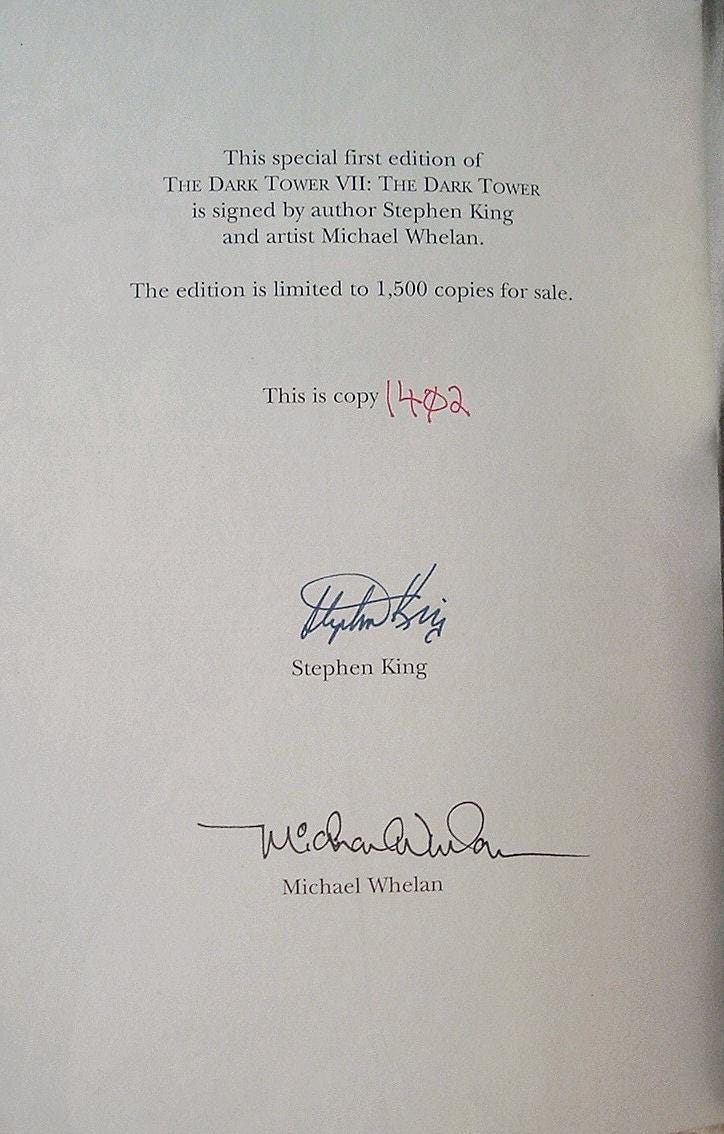 This special first edition of
THE DARK TOWER VII: THE DARK TOWER
is signed by author Stephen King
and artist Michael Whelan.
The edition is limited to 1,500 copies for sale.
This is copy 1402
Stephen King
Stephen King
Michael Whelan
Michael Whelan